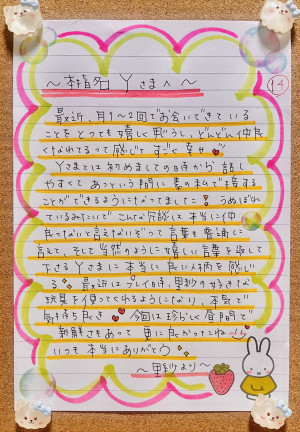 14
〜本指名 Yさまへ〜
最近、月1〜2回でお会いできている
ことをとっても嬉しく思うし、どんどん仲良
くなれてるって感じですごく幸せ
Yさまとは初めましての時から 話し
やすくて あっという間に素の私で接する
ことができるようになってました! うぬぼれ
ているみたいで こんな冗談は本当に仲
良くないと言えないぞって言葉も普通に
言えて、そして当然のように嬉しい言葉を返して
下さる Yさまに本当に良い人柄を感じ
る 最近はプレイ時、里紗の好きな
玩具を使ってくれるようになり、本気で
気持ち良き 今回は珍らしく昼間で
新鮮さもあって 更に良かったね
いつも本当にありがとう
〜里紗より〜